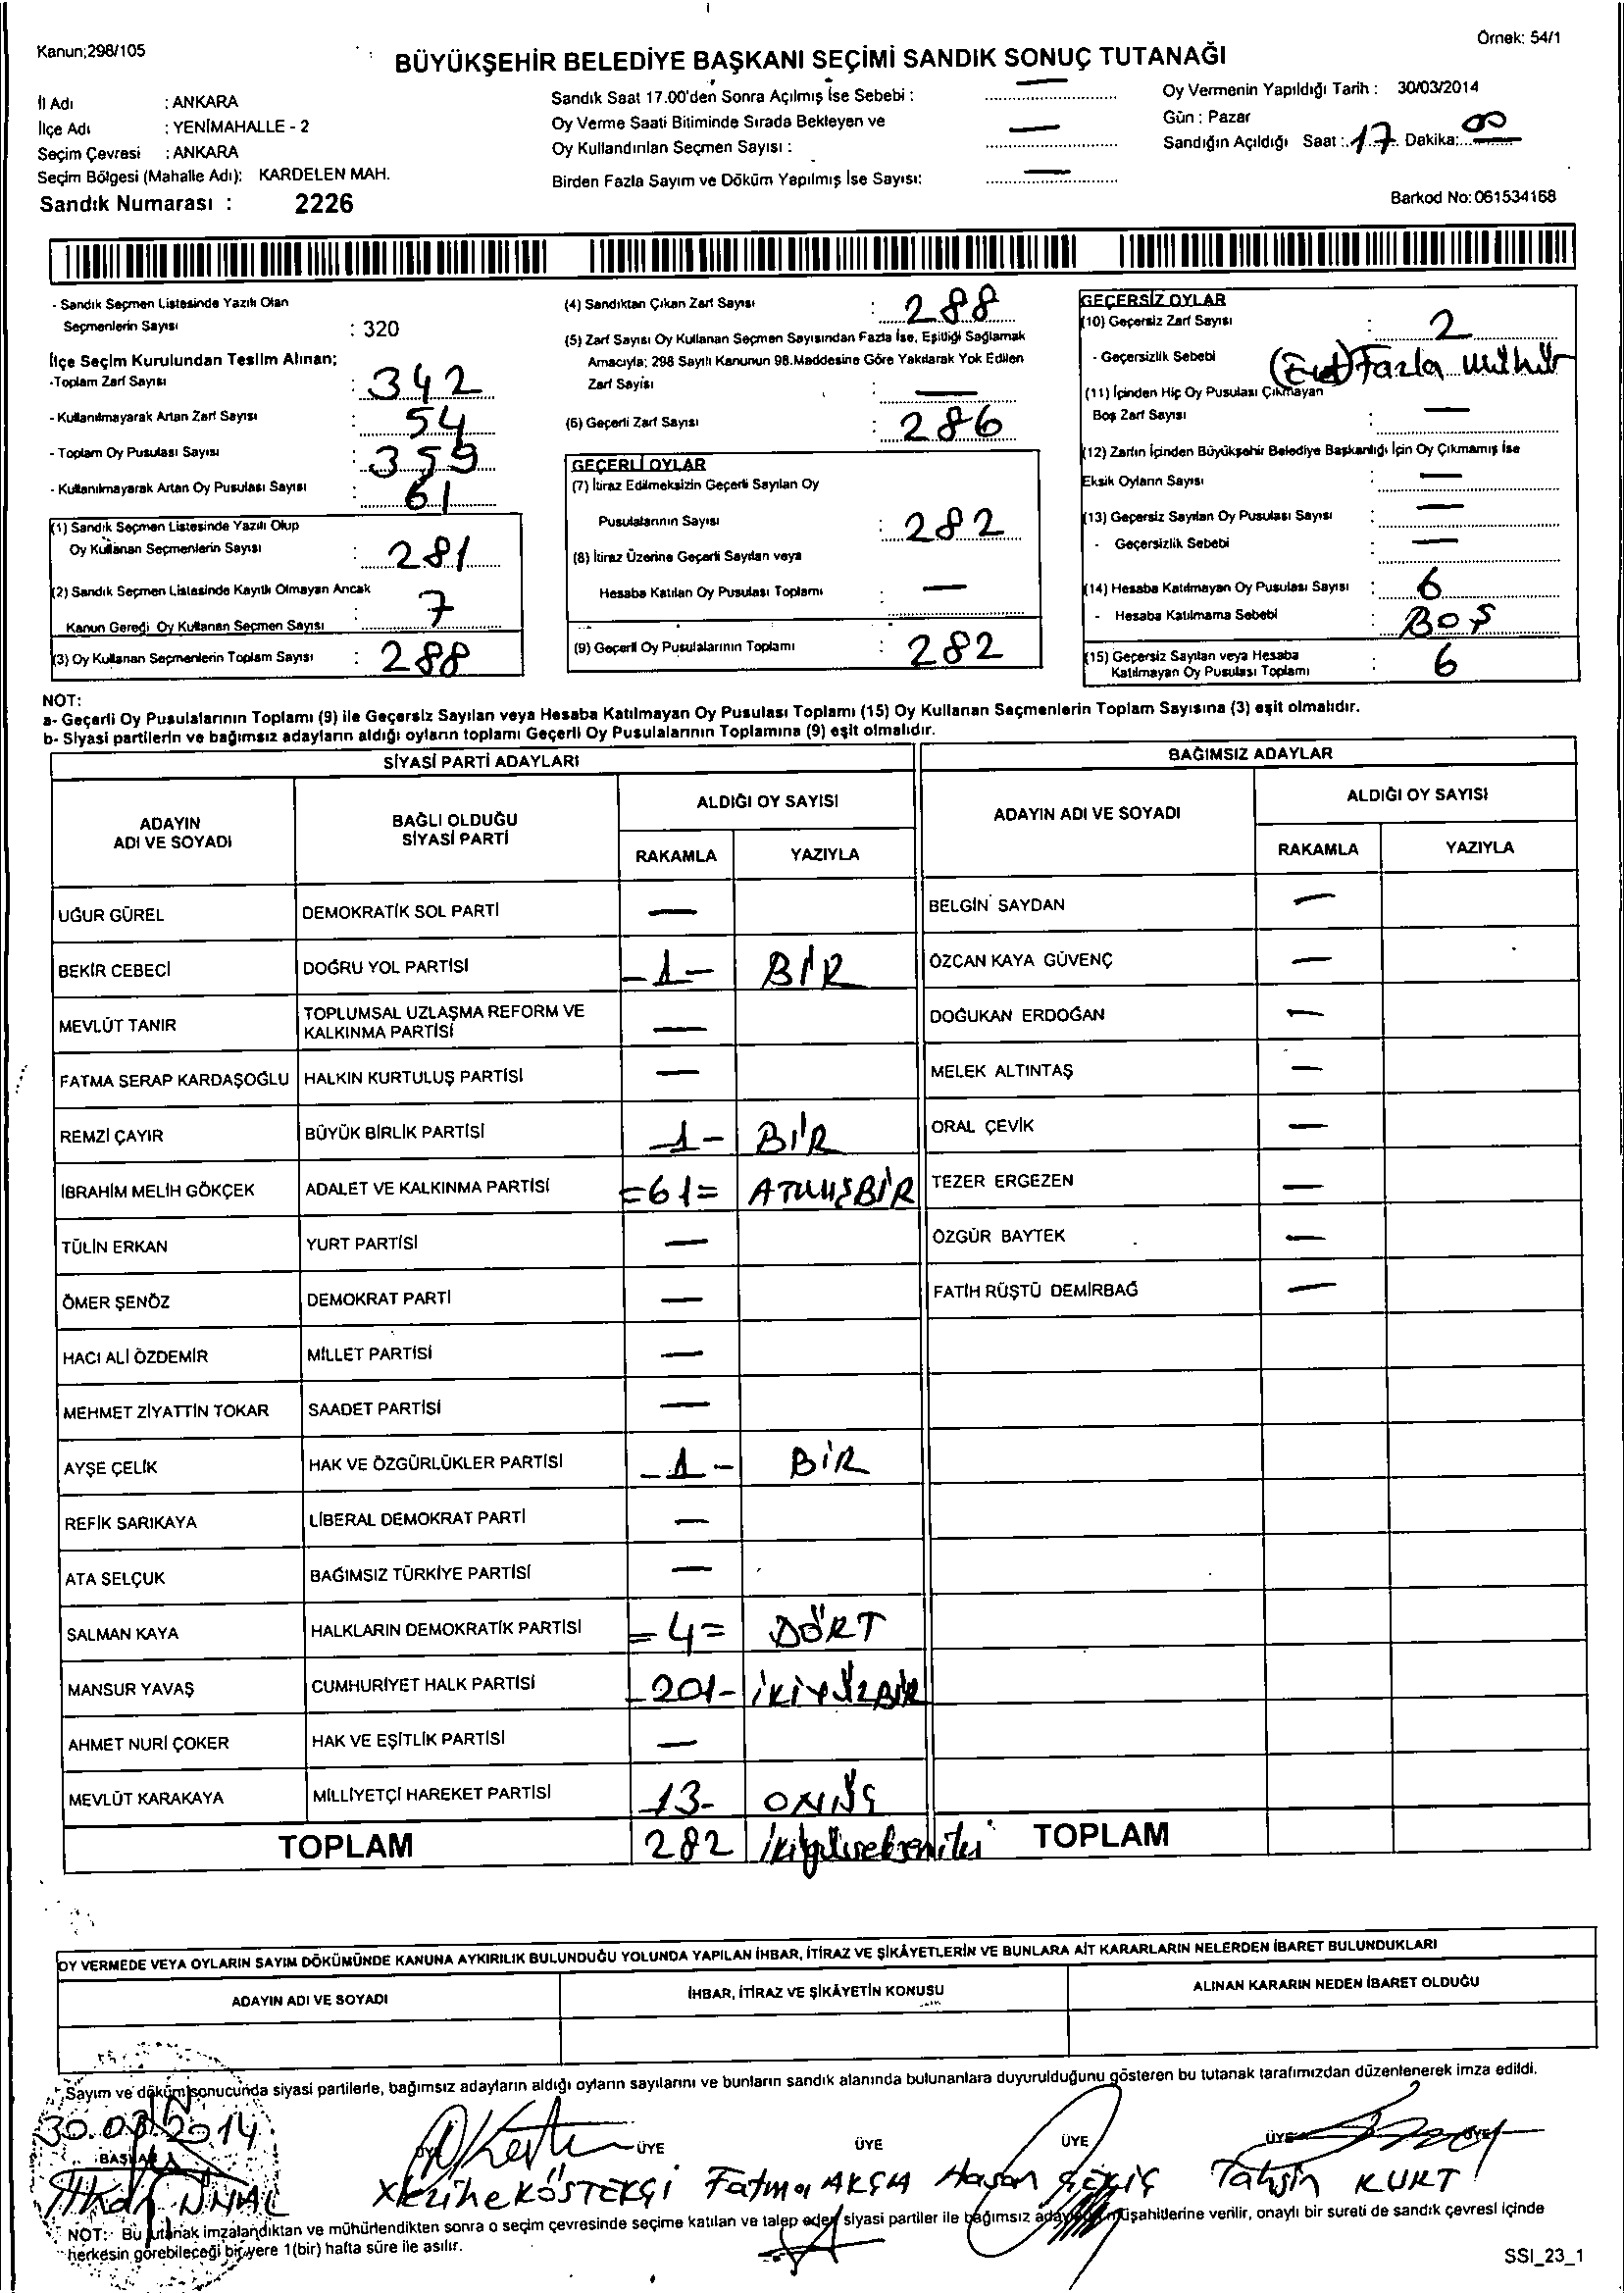 Kanun;298/105
Örnek: 54/1
BÜYÜKŞEHİR BELEDİYE BAŞKANI SEÇİMİ SANDIK SONUÇ TUTANAĞI
İl Adı : ANKARA
İlçe Adı : YENİMAHALLE - 2
Seçim Çevresi : ANKARA
Seçim Bölgesi (Mahalle Adı): KARDELEN MAH.
Sandık Numarası : 2226
Sandık Saat 17.00'den Sonra Açılmış İse Sebebi : —
Oy Verme Saati Bitiminde Sırada Bekleyen ve
Oy Kullandırılan Seçmen Sayısı : —
Birden Fazla Sayım ve Döküm Yapılmış İse Sayısı: —
Oy Vermenin Yapıldığı Tarih : 30/03/2014
Gün : Pazar
Sandığın Açıldığı Saat : 17 Dakika: 00
Barkod No: 061534168
- Sandık Seçmen Listesinde Yazılı Olan
Seçmenlerin Sayısı : 320
İlçe Seçim Kurulundan Teslim Alınan;
-Toplam Zarf Sayısı : 342
- Kullanılmayarak Artan Zarf Sayısı : 54
- Toplam Oy Pusulası Sayısı : 359
- Kullanılmayarak Artan Oy Pusulası Sayısı : 61
(1) Sandık Seçmen Listesinde Yazılı Olup
Oy Kullanan Seçmenlerin Sayısı : 281
(2) Sandık Seçmen Listesinde Kayıtlı Olmayan Ancak
Kanun Gereği Oy Kullanan Seçmen Sayısı : 7
(3) Oy Kullanan Seçmenlerin Toplam Sayısı : 288
(4) Sandıktan Çıkan Zarf Sayısı : 288
(5) Zarf Sayısı Oy Kullanan Seçmen Sayısından Fazla İse, Eşitliği Sağlamak
Amacıyla; 298 Sayılı Kanunun 98.Maddesine Göre Yakılarak Yok Edilen
Zarf Sayısı : —
(6) Geçerli Zarf Sayısı : 286
GEÇERLİ OYLAR
(7) İtiraz Edilmeksizin Geçerli Sayılan Oy
Pusulalarının Sayısı : 282
(8) İtiraz Üzerine Geçerli Sayılan veya
Hesaba Katılan Oy Pusulası Toplamı : —
(9) Geçerli Oy Pusulalarının Toplamı : 282
GEÇERSİZ OYLAR
(10) Geçersiz Zarf Sayısı : 2
- Geçersizlik Sebebi Fazla mühür
(11) İçinden Hiç Oy Pusulası Çıkmayan
Boş Zarf Sayısı : —
(12) Zarfın İçinden Büyükşehir Belediye Başkanlığı İçin Oy Çıkmamış İse
Eksik Oyların Sayısı : —
(13) Geçersiz Sayılan Oy Pusulası Sayısı : —
- Geçersizlik Sebebi : —
(14) Hesaba Katılmayan Oy Pusulası Sayısı : 6
- Hesaba Katılmama Sebebi : BOŞ
(15) Geçersiz Sayılan veya Hesaba
Katılmayan Oy Pusulası Toplamı : 6
NOT:
a- Geçerli Oy Pusulalarının Toplamı (9) ile Geçersiz Sayılan veya Hesaba Katılmayan Oy Pusulası Toplamı (15) Oy Kullanan Seçmenlerin Toplam Sayısına (3) eşit olmalıdır.
b- Siyasi partilerin ve bağımsız adayların aldığı oyların toplamı Geçerli Oy Pusulalarının Toplamına (9) eşit olmalıdır.
SİYASİ PARTİ ADAYLARI
BAĞIMSIZ ADAYLAR
ADAYIN
ADI VE SOYADI
BAĞLI OLDUĞU
SİYASİ PARTİ
ALDIĞI OY SAYISI
RAKAMLA YAZIYLA
ADAYIN ADI VE SOYADI
ALDIĞI OY SAYISI
RAKAMLA YAZIYLA
UĞUR GÜREL DEMOKRATİK SOL PARTİ —
BELGİN SAYDAN —
BEKİR CEBECİ DOĞRU YOL PARTİSİ -1- BİR
ÖZCAN KAYA GÜVENÇ —
MEVLÜT TANIR TOPLUMSAL UZLAŞMA REFORM VE
KALKINMA PARTİSİ —
DOĞUKAN ERDOĞAN —
FATMA SERAP KARDAŞOĞLU HALKIN KURTULUŞ PARTİSİ —
MELEK ALTINTAŞ —
REMZİ ÇAYIR BÜYÜK BİRLİK PARTİSİ -1- BİR
ORAL ÇEVİK —
İBRAHİM MELİH GÖKÇEK ADALET VE KALKINMA PARTİSİ =61= ATMIŞBİR
TEZER ERGEZEN —
TÜLİN ERKAN YURT PARTİSİ —
ÖZGÜR BAYTEK —
ÖMER ŞENÖZ DEMOKRAT PARTİ —
FATİH RÜŞTÜ DEMİRBAĞ —
HACI ALİ ÖZDEMİR MİLLET PARTİSİ —
MEHMET ZİYATTİN TOKAR SAADET PARTİSİ —
AYŞE ÇELİK HAK VE ÖZGÜRLÜKLER PARTİSİ -1- BİR
REFİK SARIKAYA LİBERAL DEMOKRAT PARTİ —
ATA SELÇUK BAĞIMSIZ TÜRKİYE PARTİSİ —
SALMAN KAYA HALKLARIN DEMOKRATİK PARTİSİ =4= DÖRT
MANSUR YAVAŞ CUMHURİYET HALK PARTİSİ -201- İKİYÜZBİR
AHMET NURİ ÇOKER HAK VE EŞİTLİK PARTİSİ —
MEVLÜT KARAKAYA MİLLİYETÇİ HAREKET PARTİSİ -13- ONÜÇ
TOPLAM 282 İkiyüzsekseniki TOPLAM
OY VERMEDE VEYA OYLARIN SAYIM DÖKÜMÜNDE KANUNA AYKIRILIK BULUNDUĞU YOLUNDA YAPILAN İHBAR, İTİRAZ VE ŞİKÂYETLERİN VE BUNLARA AİT KARARLARIN NELERDEN İBARET BULUNDUKLARI
ADAYIN ADI VE SOYADI İHBAR, İTİRAZ VE ŞİKÂYETİN KONUSU ALINAN KARARIN NEDEN İBARET OLDUĞU
Sayım ve döküm sonucunda siyasi partilerle, bağımsız adayların aldığı oyların sayılarını ve bunların sandık alanında bulunanlara duyurulduğunu gösteren bu tutanak tarafımızdan düzenlenerek imza edildi.
30.03.2014
BAŞKAN ÜYE ÜYE ÜYE ÜYE
İlkay ÜNAL Nezihe KÖSTEKÇİ Fatma AKÇA Hasan Tahsin KURT
NOT: Bu tutanak imzalandıktan ve mühürlendikten sonra o seçim çevresinde seçime katılan ve talep eden siyasi partiler ile bağımsız aday müşahitlerine verilir, onaylı bir sureti de sandık çevresi içinde
herkesin görebileceği bir yere 1(bir) hafta süre ile asılır.
SSI_23_1